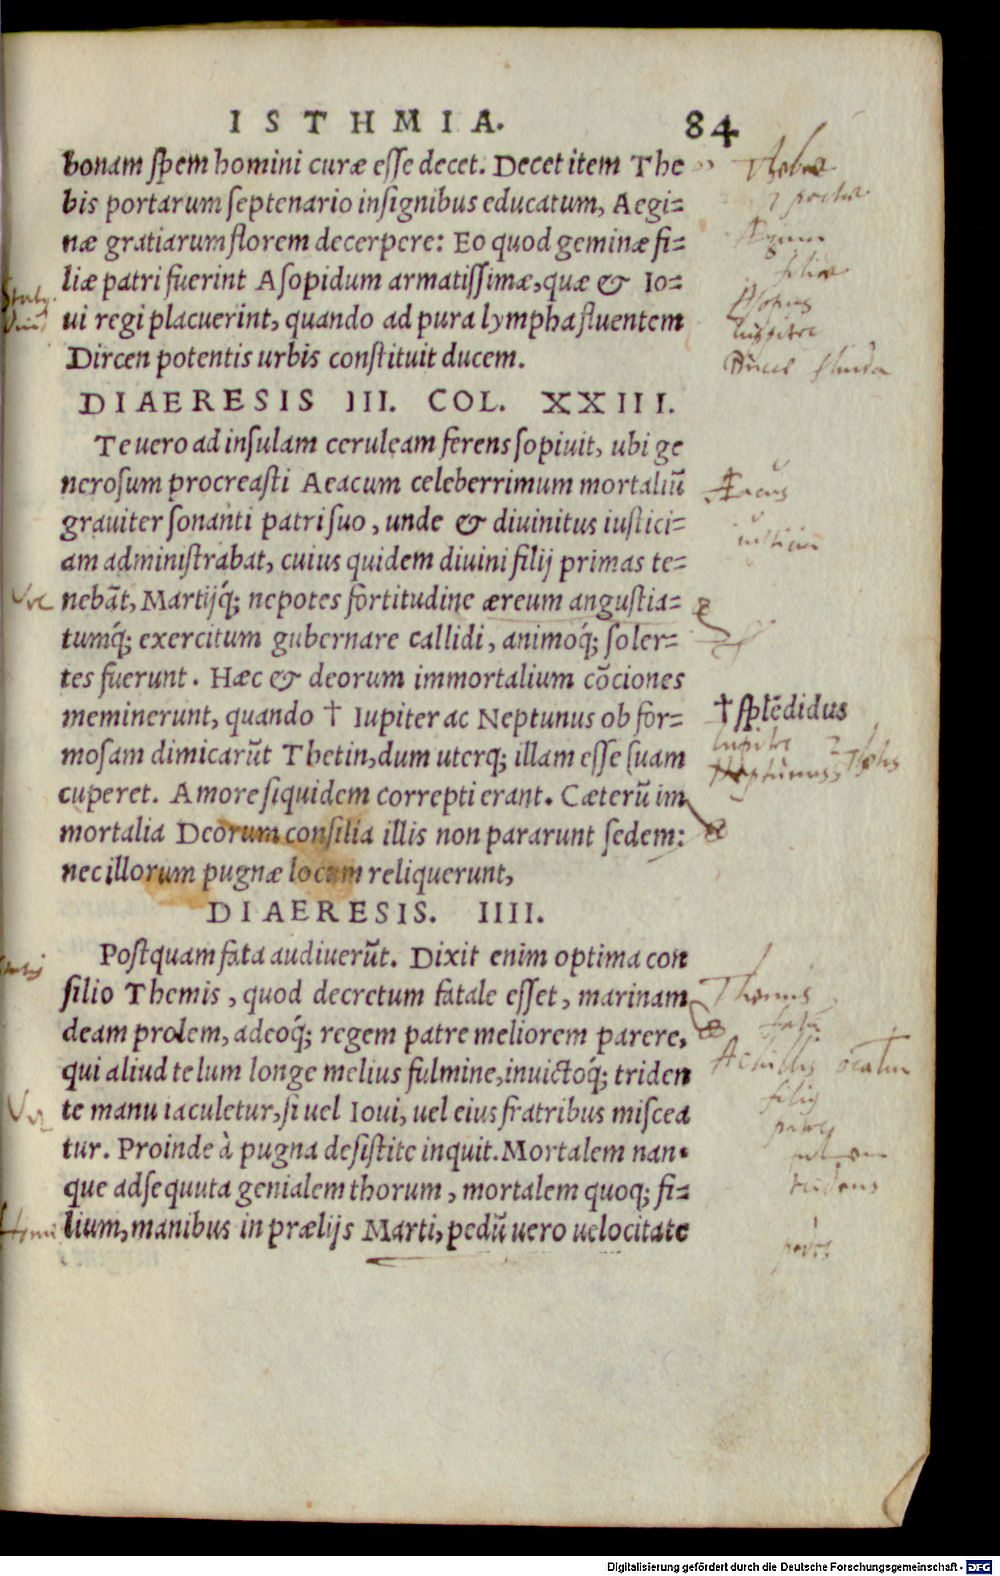 ISTHMIA. 84
bonam spem homini curæ esse decet. Decet item The
bis portarum septenario insignibus educatum, Aegi=
næ gratiarum florem decerpere: Eo quod geminæ fi=
liæ patri fuerint Asopidum armatissimæ, quæ & Io=
ui regi placuerint, quando ad pura lympha fluentem
Dircen potentis urbis constituit ducem.
DIAERESIS III. COL. XXIII.
Te uero ad insulam ceruleam ferens sopiuit, ubi ge
nerosum procreasti Aeacum celeberrimum mortaliũ
grauiter sonanti patri suo, unde & diuinitus iustici=
am administrabat, cuius quidem diuini filij primas te=
nebãt, Martijq́; nepotes fortitudine æreum angustia=
tumq́; exercitum gubernare callidi, animoq́; soler=
tes fuerunt. Hæc & deorum immortalium cõciones
meminerunt, quando † Iupiter ac Neptunus ob for=
†splẽdidus
mosam dimicarũt Thetin, dum uterq; illam esse suam
cuperet. Amore siquidem correpti erant. Cæterũ im
mortalia Deorum consilia illis non pararunt sedem:
nec illorum pugnæ locum reliquerunt,
DIAERESIS. IIII.
Postquam fata audiuerũt. Dixit enim optima con
silio Themis, quod decretum fatale esset, marinam
deam prolem, adeoq́; regem patre meliorem parere,
qui aliud telum longe melius fulmine, inuictoq́; triden
te manu iaculetur, si uel Ioui, uel eius fratribus miscea
tur. Proinde à pugna desistite inquit. Mortalem nan=
que adsequuta genialem thorum, mortalem quoq; fi=
lium, manibus in prælijs Marti, pedũ uero uelocitate
Themis
Digitalisierung gefördert durch die Deutsche Forschungsgemeinschaft - DFG